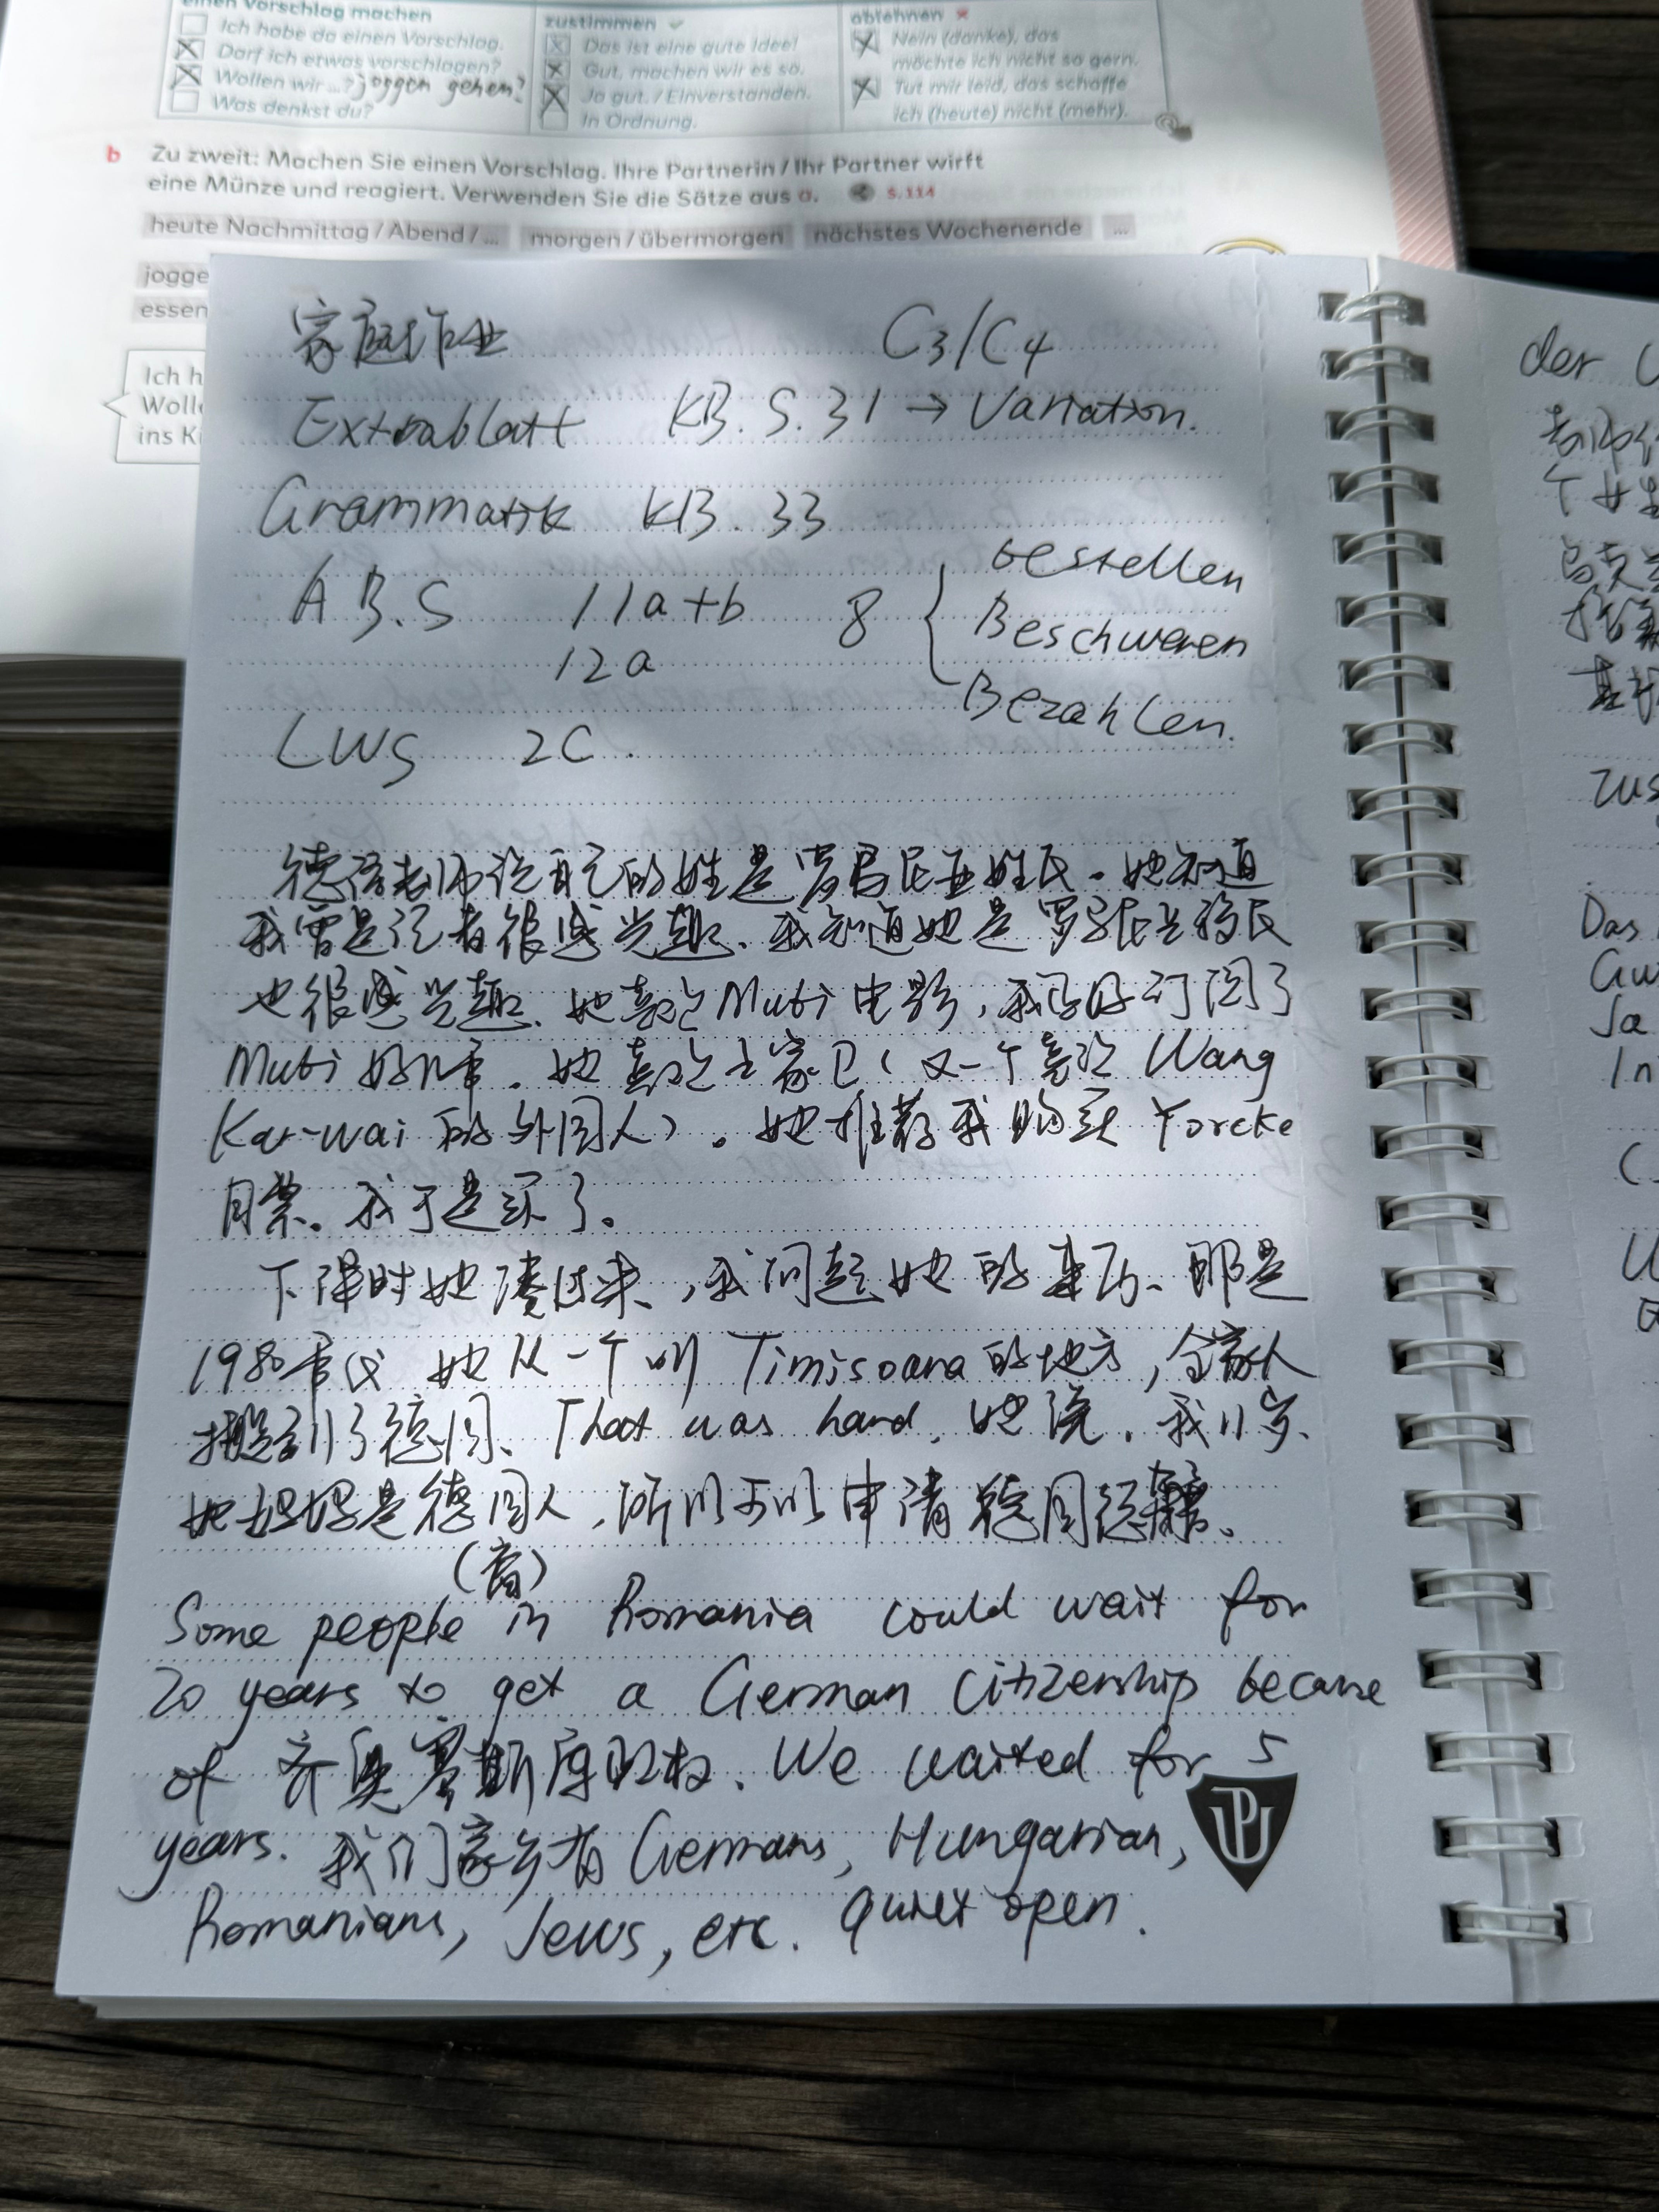 einen Vorschlag machen
Ich habe da einen Vorschlag.
Darf ich etwas vorschlagen?
Wollen wir ...? joggen gehen?
Was denkst du?
zustimmen ✓
Das ist eine gute Idee!
Gut, machen wir es so.
Ja gut. / Einverstanden.
In Ordnung.
ablehnen ✗
Nein (danke), das
möchte ich nicht so gern.
Tut mir leid, das schaffe
ich (heute) nicht (mehr).
b Zu zweit: Machen Sie einen Vorschlag. Ihre Partnerin / Ihr Partner wirft
eine Münze und reagiert. Verwenden Sie die Sätze aus a. S. 114
heute Nachmittag / Abend / ... morgen / übermorgen nächstes Wochenende ...
jogge
essen
Ich h
Woll
ins K
家庭作业 C3/C4
Extrablatt KB. S. 31 → Variation.
Grammatik KB. 33
AB. S 11a+b 8 { bestellen
Beschweren
12a
Bezahlen.
LWS 2C.
德语老师说自己的姓是罗马尼亚姓氏。她知道
我曾是记者很感兴趣、我知道她是罗马尼亚移民
也很感兴趣、她喜欢Mubi电影,我正好订阅了
Mubi好几年。她喜欢王家卫(又一个喜欢 Wang
Kar-wai 的外国人)。她推荐我购买 Yorcke
月票。我于是买了。
下课时她凑过来,我问起她的来历、那是
1980年代 她从一个叫 Timisoara 的地方,全家人
搬到了德国、That was hard, 她说,我11岁、
她妈妈是德国人,所以可以申请德国德籍、
(裔)
Some people in Romania could wait for
20 years to get a German citizenship because
of 齐奥塞斯库的政权、We waited for 5
years. 我们家乡有 Germans, Hungarian,
Romanians, Jews, etc. Quiet open.
JPU
der
老师
个女
乌克
基
zus
Das
Ja
In